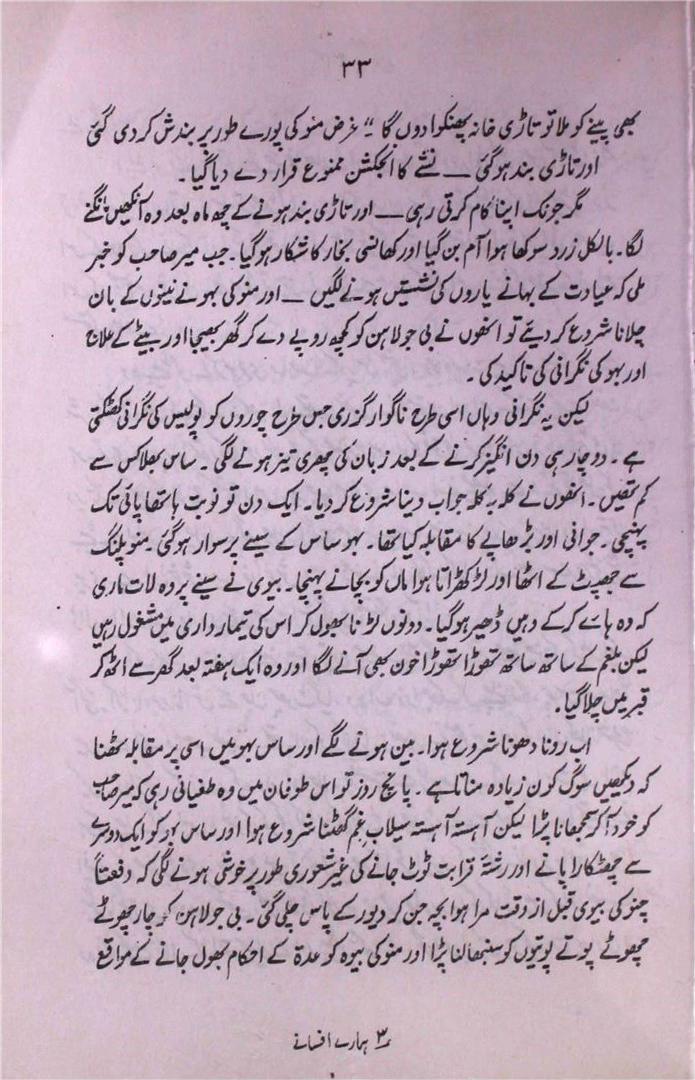 ۳۳
بھی پینے کو ملا تو تاڑی خانہ پھنکوا دوں گا“ غرض منو کی پورے طور پر بندش کر دی گئی
اور تاڑی بند ہو گئی — نشے کا انجکشن ممنوع قرار دے دیا گیا۔
مگر جونک اپنا کام کرتی رہی — اور تاڑی بند ہونے کے چھ ماہ بعد وہ آنکھیں مانگنے
لگا۔ بالکل زرد سوکھا ہوا آم بن گیا اور کھانسی بخار کا شکار ہو گیا۔ جب میر صاحب کو خبر
ملی کہ عیادت کے بہانے یاروں کی نشستیں ہونے لگیں — اور منو کی بہو نے نینوں کے بان
چلانا شروع کر دیئے تو انھوں نے بی جولاہن کو کچھ روپے دے کر گھر بھیجا اور بیٹے کے علاج
اور بہو کی نگرانی کی تاکید کی۔
لیکن یہ نگرانی وہاں اسی طرح ناگوار گزری جس طرح چوروں کو پولیس کی نگرانی کھٹکتی
ہے۔ دو چار ہی دن انگیز کرنے کے بعد زبان کی چھری تیز ہونے لگی۔ ساس بھلا کس سے
کم تھیں۔ انھوں نے کلہ بہ کلہ جواب دینا شروع کر دیا۔ ایک دن تو نوبت ہاتھا پائی تک
پہنچی۔ جوانی اور بڑھاپے کا مقابلہ کیا تھا۔ بہو ساس کے سینے پر سوار ہو گئی۔ منو پلنگ
سے جھپٹ کے اٹھا اور لڑکھڑاتا ہوا ماں کو بچانے پہنچا۔ بیوی نے سینے پر وہ لات ماری
کہ وہ ہائے کر کے وہیں ڈھیر ہو گیا۔ دونوں لڑنا بھول کر اس کی تیمارداری میں مشغول رہیں
لیکن بلغم کے ساتھ ساتھ تھوڑا تھوڑا خون بھی آنے لگا اور وہ ایک ہفتہ بعد گھر سے اٹھ کر
قبر میں چلا گیا۔
اب رونا دھونا شروع ہوا۔ بین ہونے لگے اور ساس بہو میں اسی پر مقابلہ ٹھنا
کہ دیکھیں سوگ کون زیادہ مناتا ہے۔ پانچ روز تو اس طوفان میں وہ طغیانی رہی کہ میر صاحب
کو خود آ کر سمجھانا پڑا لیکن آہستہ آہستہ سیلاب غم گھٹنا شروع ہوا اور ساس بہو کو ایک دوسرے
سے چھٹکارا پانے اور رشتۂ قرابت ٹوٹ جانے کی غیر شعوری طور پر خوشی ہونے لگی کہ دفعتاً
چنو کی بیوی قبل از وقت مرا ہوا بچہ جن کر دیور کے پاس چلی گئی۔ بی جولاہن کو چار چھوٹے
چھوٹے پوتے پوتیوں کو سنبھالنا پڑا اور منو کی بیوہ کو عدۃ کے احکام بھول جانے کے مواقع
۳ ہمارے افسانے